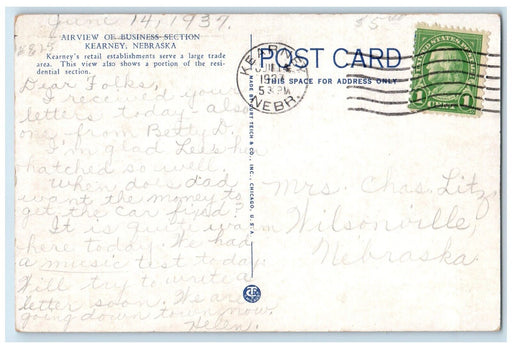 June 14, 1934.
$5.00
AIRVIEW OF BUSINESS SECTION
KEARNEY, NEBRASKA
Kearney's retail establishments serve a large trade
area. This view also shows a portion of the resi-
dential section.
POST CARD
THIS SPACE FOR ADDRESS ONLY
KEARNEY
JUN 14
1934
5 PM
NEBR.
UNITED STATES POSTAGE
1 1
Dear Folks,
I rec'd your
letters today also
one from Betty D.
I'm glad Lee's hen
hatched so well.
When does dad
want the money to
get the car fixed?
It is quite warm
here today. We had
a music test today.
Will try to write a
letter soon. We are
going down town now.
Helen.
MADE BY CURT TEICH & CO., INC., CHICAGO, U.S.A.
Mrs. Chas. Litz
Wilsonville,
Nebraska